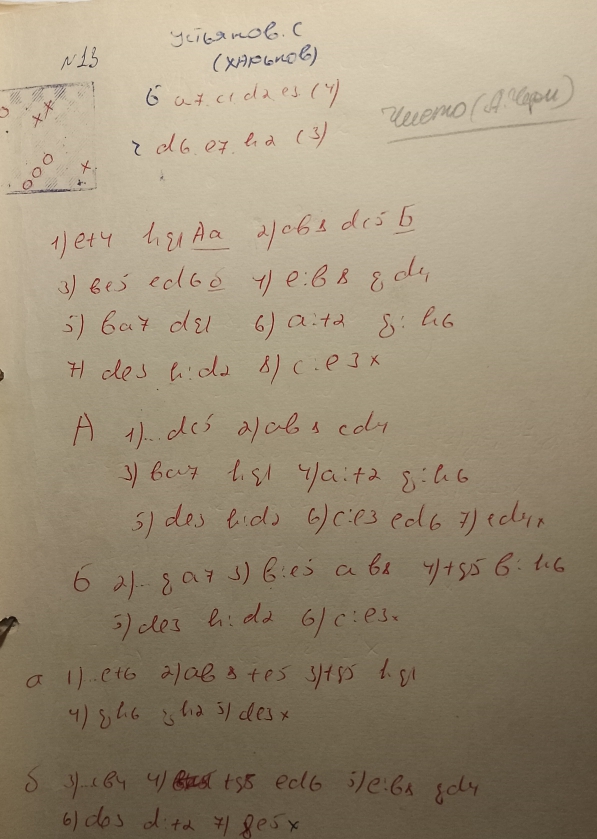 N13
Устьянов. С
(ХАРЬКОВ)
б а7. с1 d2 e3 (4)
ч d6. e7. h2 (3)
Чисто (А. Чери)
1) e+4 hg1 Aa 2) ab8 dc5 Б
3) be5 ed6 б 4) e:b8 gd4
5) ba7 dg1 6) a:+2 g:h6
7) de3 h:d2 8) c:e3 x
А 1)... dc5 2) ab8 cd4
3) ba7 hg1 4) a:+2 g:h6
5) de3 h:d2 6) c:e3 ed6 7) ed4 x
б 2)... ga7 3) b:e5 ab8 4) +g5 b:h6
5) de3 h:d2 6) c:e3 x
а 1)... e+6 2) ab8 +e5 3) +g5 hg1
4) gh6 gh2 5) de3 x
б 3)... cb4 4) +g5 ed6 5) e:b8 gd4
6) de3 d:+2 7) ge5 x